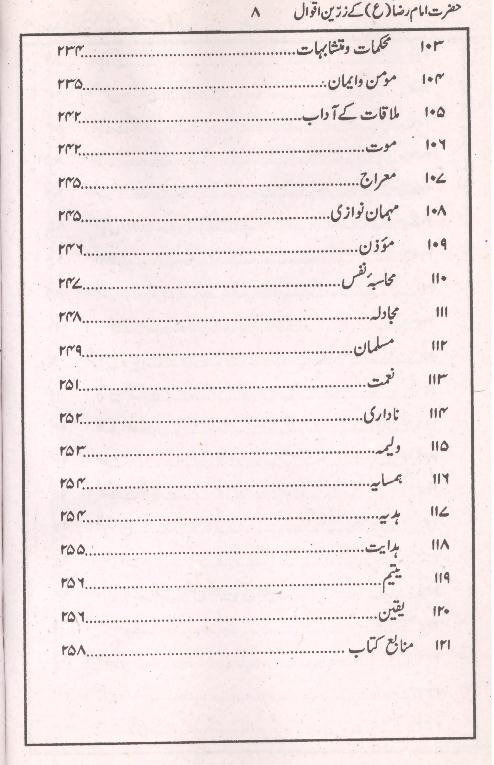 حضرت امام رضا (ع) کے زرّین اقوال ۸
۱۰۳ محکمات ومتشابہات ۲۳۴
۱۰۴ مومن وایمان ۲۳۵
۱۰۵ ملاقات کے آداب ۲۴۲
۱۰۶ موت ۲۴۲
۱۰۷ معراج ۲۴۵
۱۰۸ مہمان نوازی ۲۴۵
۱۰۹ مؤذن ۲۴۶
۱۱۰ محاسبۂ نفس ۲۴۷
۱۱۱ مجادلہ ۲۴۸
۱۱۲ مسلمان ۲۴۹
۱۱۳ نعمت ۲۵۱
۱۱۴ ناداری ۲۵۲
۱۱۵ ولیمہ ۲۵۳
۱۱۶ ہمسایہ ۲۵۴
۱۱۷ ہدیہ ۲۵۴
۱۱۸ ہدایت ۲۵۵
۱۱۹ یتیم ۲۵۶
۱۲۰ یقین ۲۵۶
۱۲۱ منابع کتاب ۲۵۸